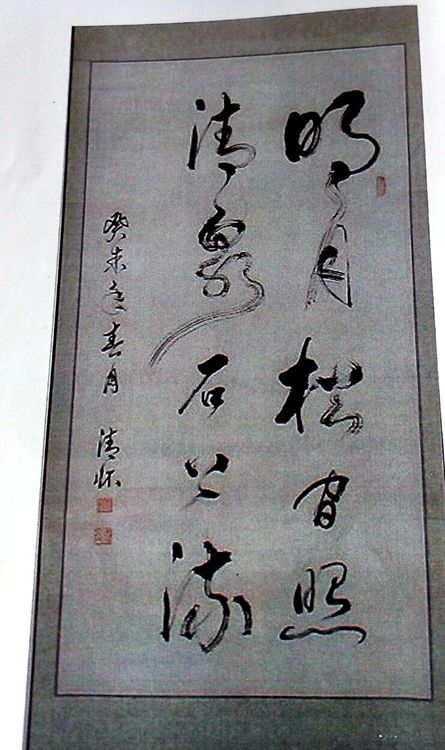 明月松间照
清泉石上流
癸未年春月 清怀